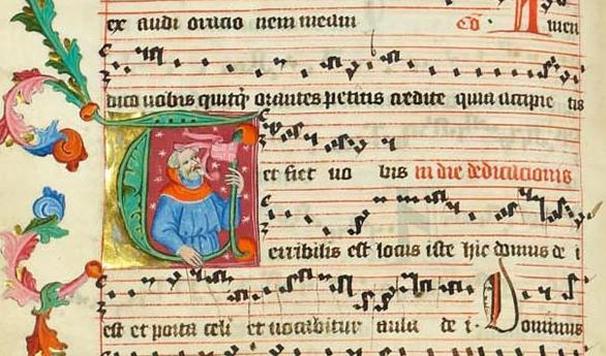 ex audi oracio nem meam Co. Amen
dico uobis quitq orantes petitis credite quia accipie tis
et fiet uo bis in die dedicacionis
Terribilis est locus iste hic domus de i
est et porta celi et uocabitur aula de i. Dominus